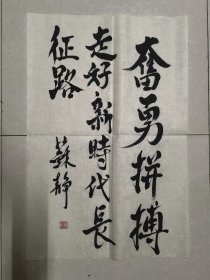 奮勇拼搏
走好新時代長
征路
蘇静